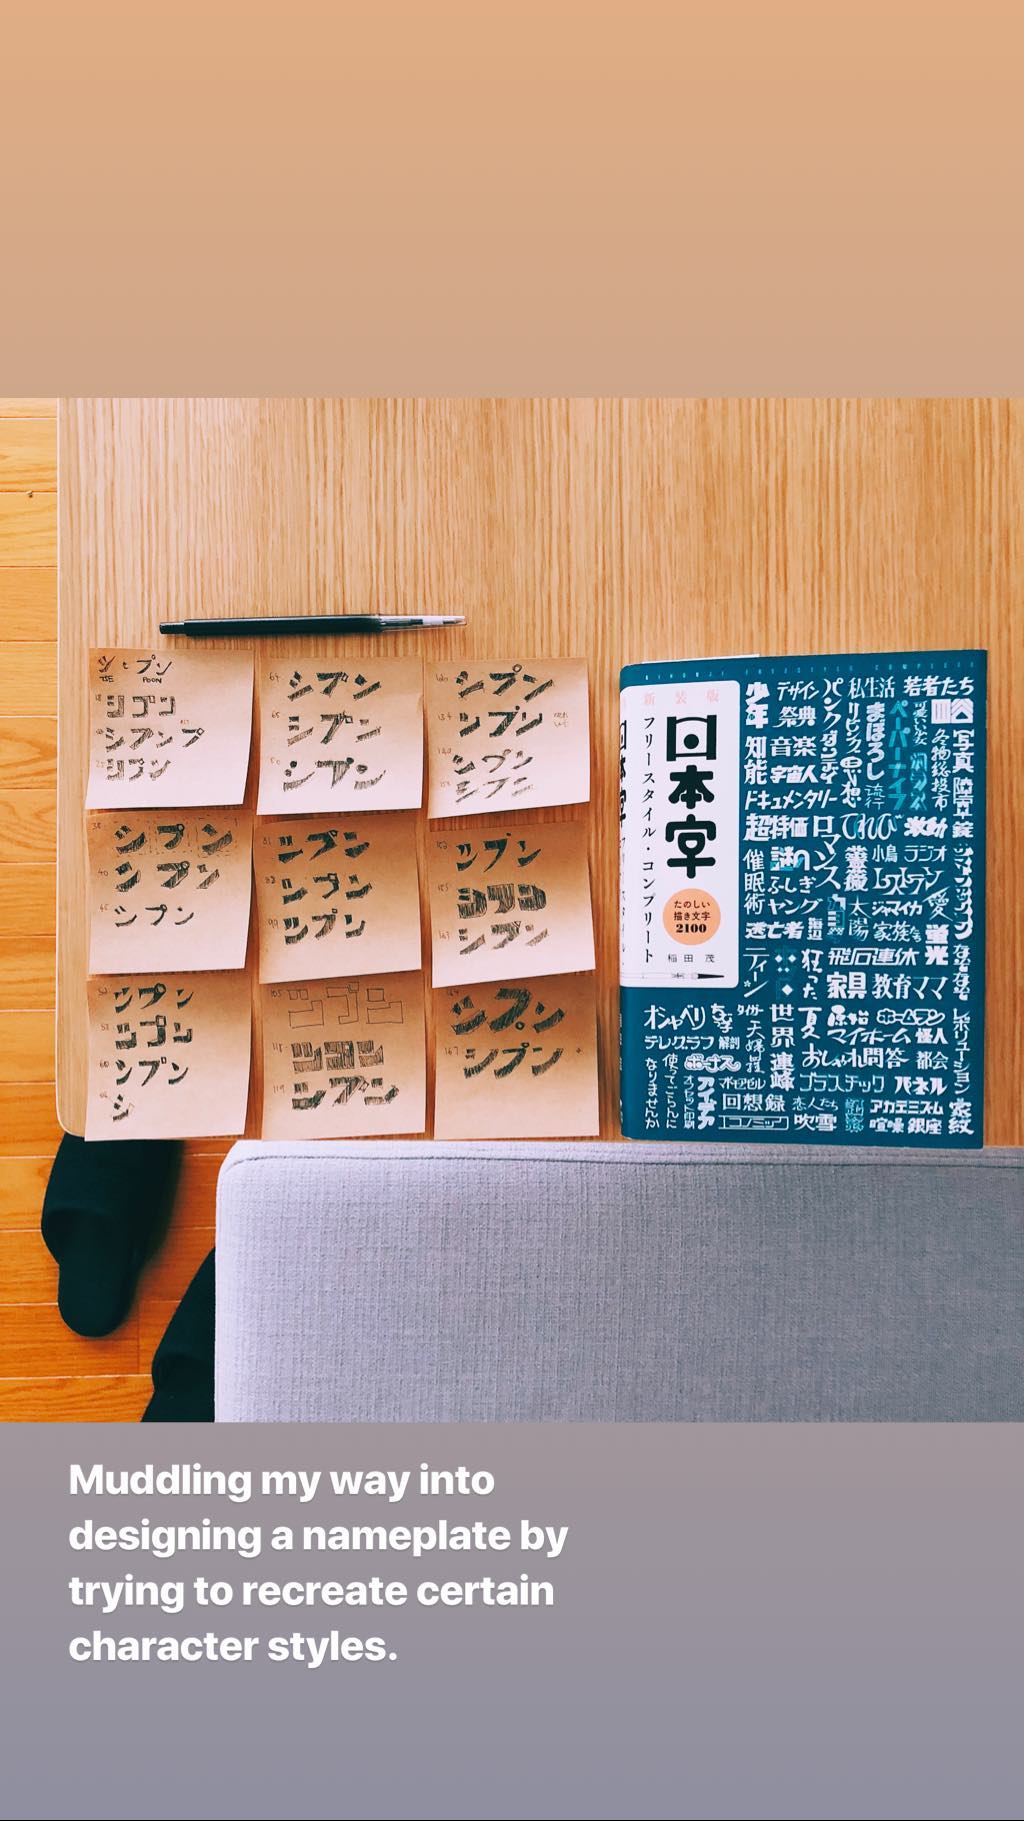 シ と プン
THE POON
シプン
シプンプ
シプン
64
シプン
65
シプン
シプン
シプン
シプン
シプン
シプン
38
シプン
40
シプン
45
シプン
81
シプン
88
シプン
99
シプン
152
シプン
155
シプン
167
シプン
シプン
53
シプン
60
シプン
シ
105
シプン
118
シプン
119
シプン
シプン
167
シプン
新装版
日本字
フリースタイル・コンプリート
たのしい
描き文字
2100
稲田 茂
少年
デザイン
祭典
パンク
私生活
若者たち
知能
音楽
宇宙人
まぼろし
流行
ペーパーナイフ
可愛い女
冬物総投市
写真
ドキュメンタリー
超特価
ロマンス
てれび
激動
催眠術
謎の
ふしぎ
ヤング
小鳥
ラジオ
レストラン
太陽
ジャマイカ
家族たち
愛
蛍光
逃亡者
ティーン
狂った
飛石連休
家具
教育ママ
オシャベリ
テレグラフ
解剖
世界
連峰
夏
マイホーム
ホームラン
怪人
レボリューション
おしゃれ問答
都会
なりませんか
使ってごらんに
ボーナス
アイデア
プラスチック
パネル
回想録
恋人たち
アカデミズム
家紋
コミック
吹雪
喧噪
銀座
Muddling my way into
designing a nameplate by
trying to recreate certain
character styles.